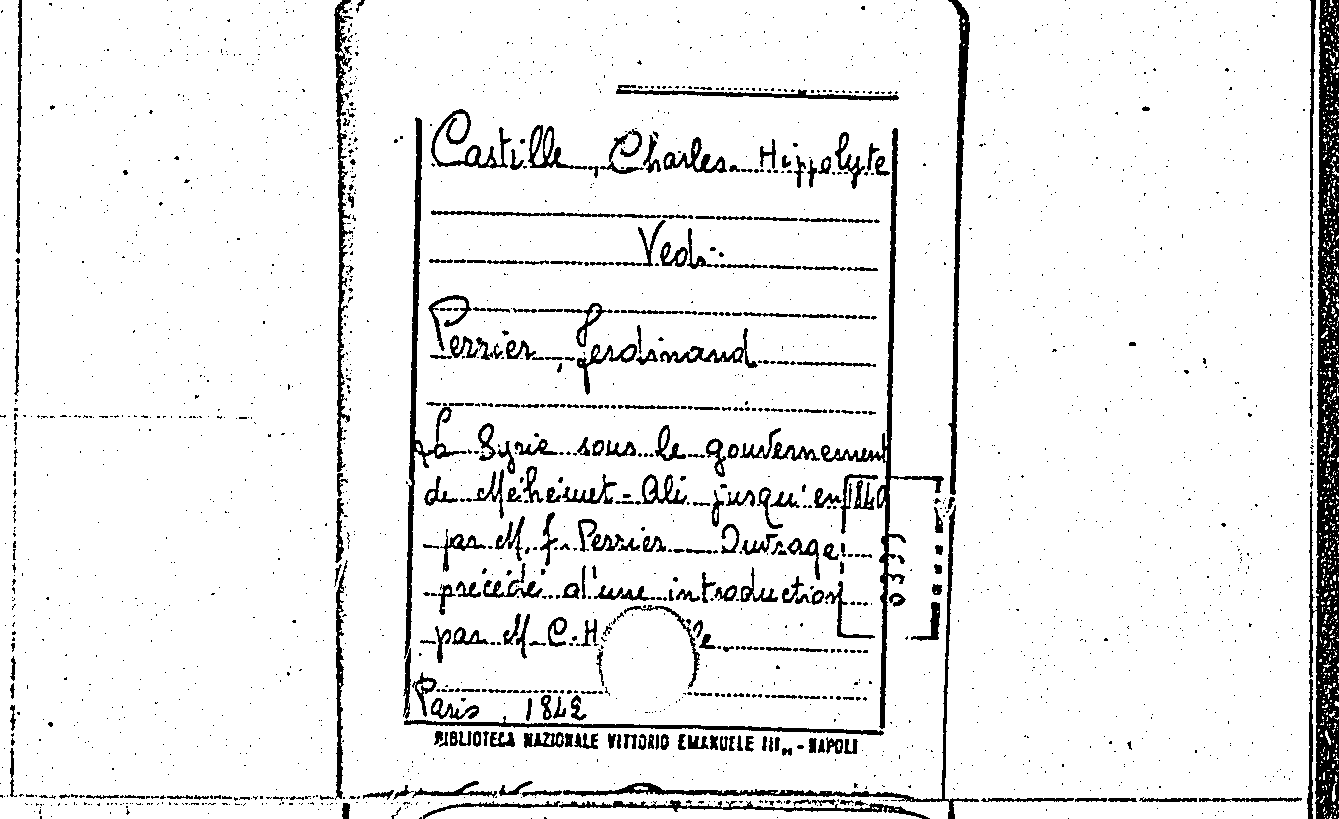 Castille, Charles-Hippolyte
Vedi:
Perrier, Ferdinand
La Syrie sous le gouvernement
de Méhémet-Ali jusqu'en 1840
par M. F. Perrier Ouvrage
précédé d'une introduction
par M. C.-H
Paris, 1842
BIBLIOTECA NAZIONALE VITTORIO EMANUELE III - NAPOLI